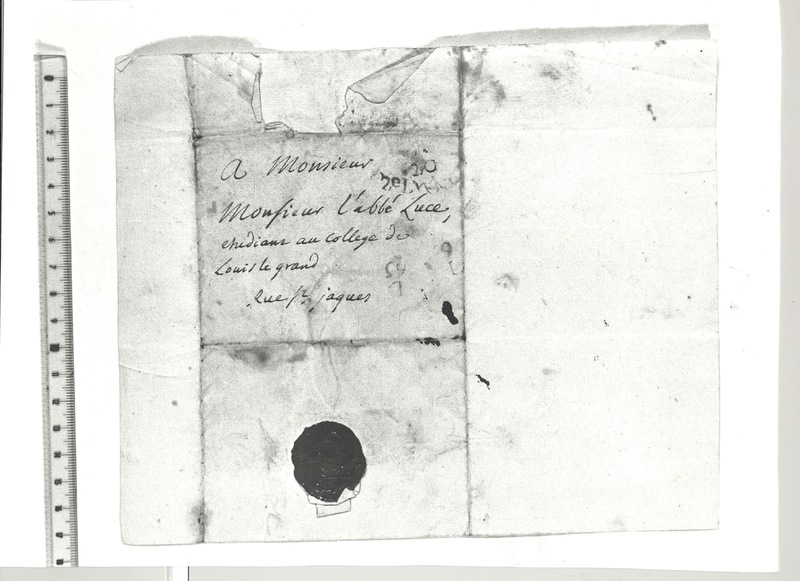 A Monsieur
Monsieur l'abbé Luce,
etudiant au college de
Louis le grand
Rue St. jaques